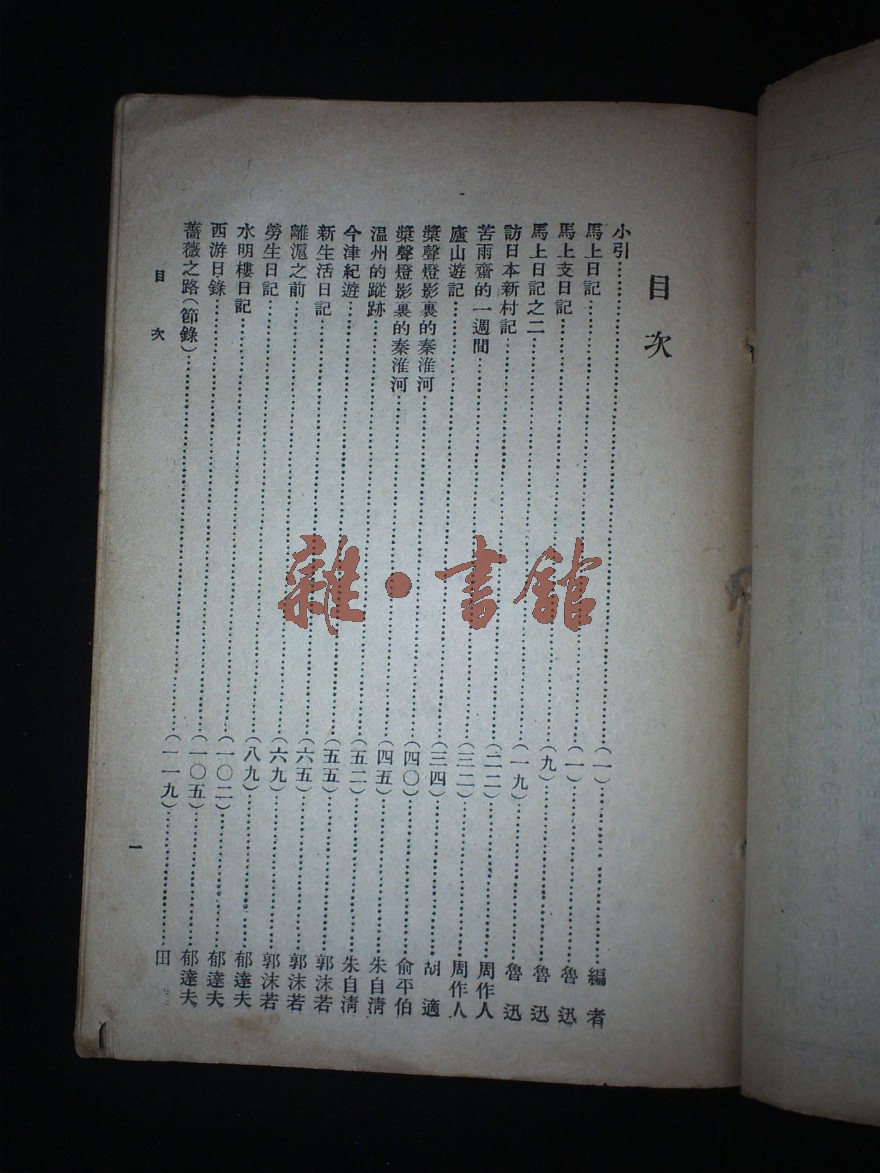 目次
小引……(一)……編者
馬上日記……(一)……魯迅
馬上支日記……(九)……魯迅
馬上日記之二……(一九)……魯迅
訪日本新村記……(二二)……周作人
苦雨齋的一週間……(三二)……周作人
廬山遊記……(三四)……胡適
槳聲燈影裏的秦淮河……(四〇)……俞平伯
槳聲燈影裏的秦淮河……(四五)……朱自清
温州的蹤跡……(五二)……朱自清
今津紀遊……(五五)……郭沫若
新生活日記……(六五)……郭沫若
離滬之前……(六九)……郭沫若
勞生日記……(八九)……郁達夫
水明樓日記……(一〇二)……郁達夫
西游日錄……(一〇五)……郁達夫
薔薇之路(節錄)……(一一九)……田
目次
一
雜·書館